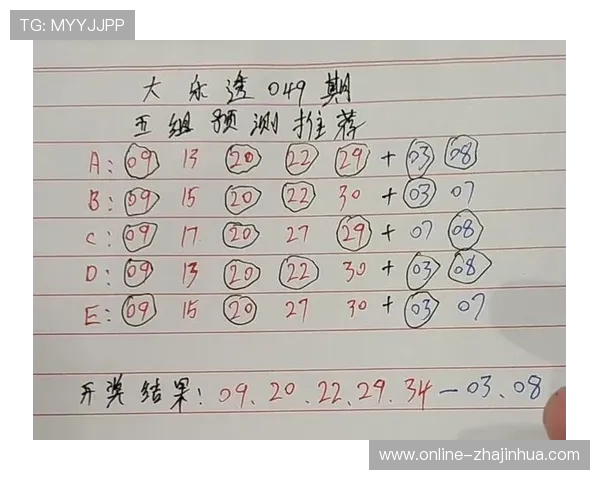 TG: MYYJJPP
大乐透049期
五组预测推荐
A: 09 13 20 22 29 + 03 08
B: 09 15 20 22 30 + 03 07
C: 09 17 20 27 29 + 07 08
D: 09 13 20 22 30 + 03 08
E: 09 15 20 27 30 + 03 07
开奖结果: 09.20.22.29.34-03.08
www.online-zhajinhua.com